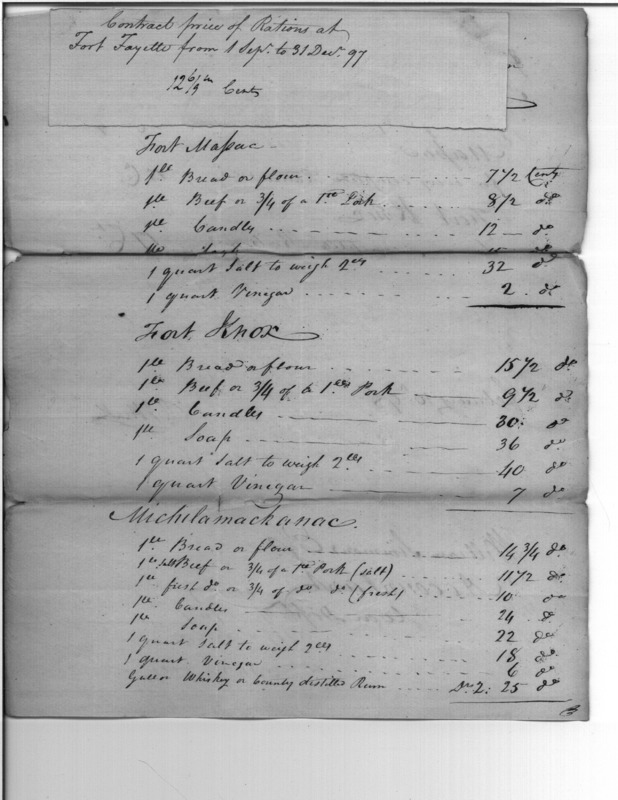 Contract price of Rations at
Fort Fayette from 1 Sepr. to 31 Decr. 97
Cents
Fort Massac
1 lb Bread or flour . . . 7 1/2 Cents
1 lb Beef or 3/4 of a lb Pork . . 8 1/2 do
1 lb Candles . . . 12 do
1 quart Salt to weigh 2 lbs . . . 32 do
1 quart Vinegar . . . 2 do
Fort Knox
1 lb Bread or flour . . . 15 1/2 do
1 lb Beef or 3/4 of a 1 lb Pork 9 1/2 do
1 lb Candles 30 do
1 lb Soap 36 do
1 quart Salt to weigh 2 lbs . . . 40 do
1 quart Vinegar 7 do
Michilamackanac.
1 lb Bread or flour 14 3/4 do
1 lb Salt Beef or 3/4 of a lb Pork (salt) 11 1/2 do
1 lb fresh do. or 3/4 of do do (fresh) 10 do
1 lb Candles 24 do
1 lb Soap 22 do
1 quart Salt to weigh 2 lbs 18 do
1 quart Vinegar 6 do
Gallon Whiskey or Country distilled Rum . . . . 2: 25 do